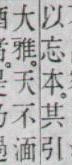 以忘本其引
大雅天不湎